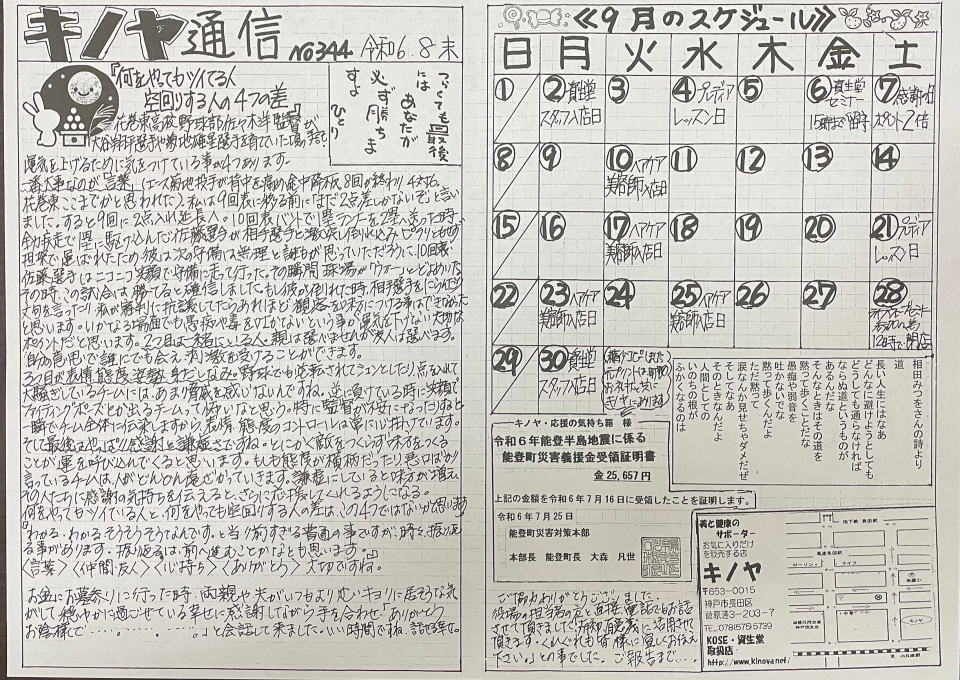 キノヤ通信 No344 令和6.8末
『何をやってもツイてる人
空回りする人の4つの差』
花巻東高校野球部佐々木洋監督が
大谷翔平選手や菊地雄星選手を育てていた頃の話です
つらくても最後
には あなたが
必ず勝ちま
すよ
ひとり
運気を上げるために気をつけている事が4つあります。
一番大事なのが「言葉」
花巻東ここまでかと思われた
ました。すると9回に2点入れ延長へ。10回表バントで1塁ランナーを2塁に送った時
全力疾走で1塁に駆け込んだ佐藤選手が相手選手と激突し倒れ込み
担架で運ばれたため彼は次の守備は無理と誰もが思っていただろうに、10回裏
佐藤選手はニコニコ笑顔で守備に走って行った。その瞬間 球場が「ウォー」とどよめいた
その時、この試合は勝てると確信しました。もし彼が倒れた時、相手選手をにらんだり
文句を言ったり、私が審判に抗議してたらあれほど観客を味方につける事はできなかった
と思います。いかなる場面でも愚痴や毒を吐かないという事が運気を下げない大切な
ポイントだと思います。2つ目は一緒にいる人。親は選べませんが友人は選べます。
自分の意思で誰にでも会え 刺激を受けることができます。
3つ目が表情、態度、姿勢、身だしなみ。野球でも逆転されてシュンとしたり、点を入れ
大騒ぎしているチームには、あまり脅威を感じないんですね。逆に負けている時に笑顔で
ファイティングポーズとか出るチームって怖いなと思う。特に監督が不安になったりすると
一瞬でチーム全体に伝染しますから、表情、態度のコントロールは常に心掛けています。
そして最後はやっぱり感謝と謙虚さですね。とにかく敵をつくらず味方をつくる
ことが運を呼び込んでくると思います。もしも態度が横柄だったり、悪口ばかり
言っているチームは人がどんどん遠ざかっていきます。謙虚にしていると味方が増え
その人たちに感謝の気持ちを伝えると、さらに応援してくれるようになる。
何をやってもツイている人と、何をやっても空回りする人の差は、この4つではないかと思います
わかる、わかる そうそう そうなんです。と当り前すぎる普通の事ですが、時々振り返
る事があります。振り返るは、前へ進むことかなとも思います。
〈言葉〉〈仲間・友人〉〈心持ち〉〈ありがとう〉大切ですね。
お盆にお墓参りに行った時、両親や夫がいつもより近いキョリに居そうな気
がして穏やかに過ごせている幸せに感謝しながら手を合わせ「ありがとう
お陰様で……」と会話して来ました。いい時間ですね。
≪9月のスケジュール≫
日 月 火 水 木 金 土
1
2 資生堂 スタッフ入店日
3
4 プレディア レッスン日
5
6 資生堂 セミナー 15時まで留守
7 感謝の日 ポイント2倍
8
9
10 ヘアケア 美容師入店日
11
12
13
14
15
16
17 ヘアケア 美容師入店日
18
19
20
21 プレディア レッスン日
22
23 ヘアケア 美容師入店日
24
25 ヘアケア 美容師入店日
26
27
28 12時で閉店
29
30 資生堂 スタッフ入店日
相田みつをさんの詩より
道
長い人生にはなあ
どんなに避けようとしても
どうしても通らなければ
ならぬ道というものが
あるんだな
そんなときはその道を
黙って歩くことだな
愚痴や弱音を
吐かないでな
黙って歩くんだよ
ただ黙って
涙なんか見せちゃダメだぜ
そしてなあ
そのときなんだよ
人間としての
いのちの根が
ふかくなるのは
キノヤ・応援の気持ち箱 様
令和6年能登半島地震に係る
能登町災害義援金受領証明書
金 25,657円
上記の金額を令和6年7月16日に受領したことを証明します。
令和6年7月25日
能登町災害対策本部
本部長 能登町長 大森 凡世
ご協力ありがとうございました。
役場の担当の方と直接電話でお話
させて頂きました。
頂きます。くれぐれも皆様に宜しくお伝え
下さい。」との事でした。ご報告まで…
美と健康の
サポーター
お気に入りだけ
を販売する店
キノヤ
〒653-0015
神戸市長田区
菅原通3-203-7
TEL 078(575)5739
KOSE・資生堂
取扱店
http://www.kinoya.net/
地下鉄 長田駅
高速長田駅
ローソン
ライフ
キノヤ